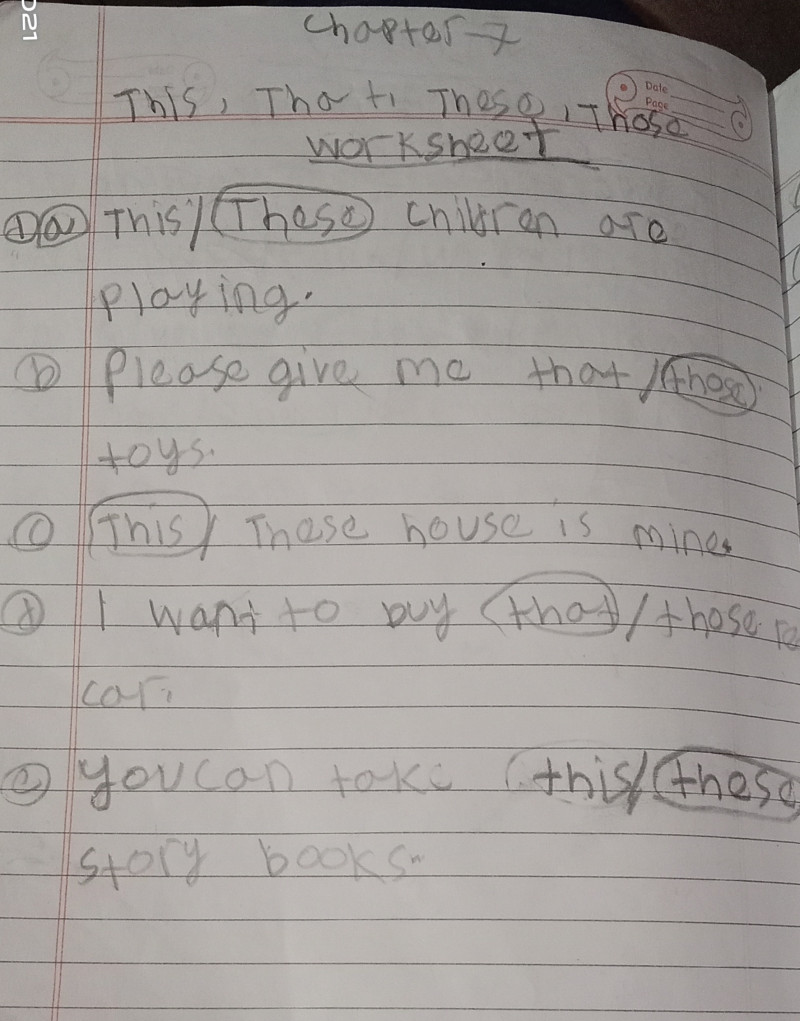 021
Chapter-7
Date
Page
This, That, These, Those
worksheet
① ⓐ This/These children are
playing.
ⓑ Please give me that/those
toys.
ⓒ This/These house is mine.
ⓓ I want to buy that/those
car.
ⓔ You can take this/these
story books.